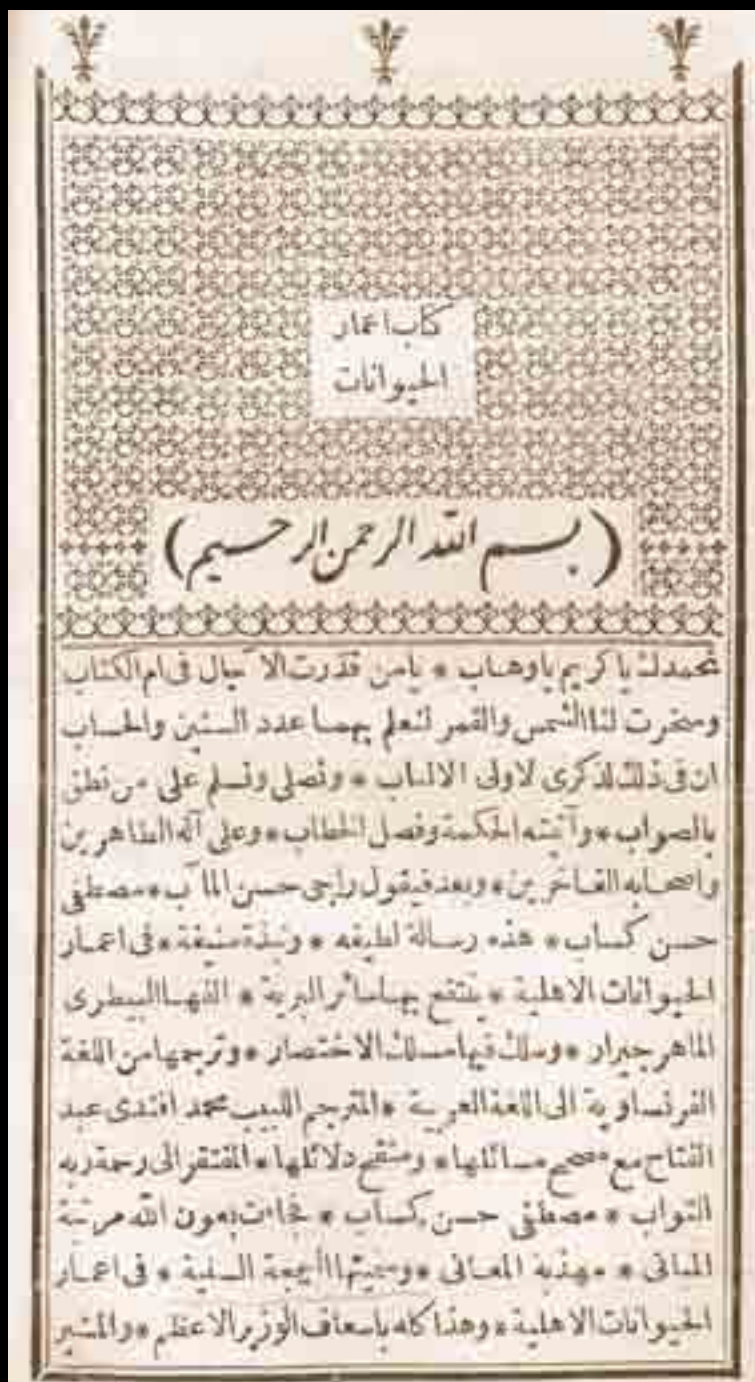 كتاب اعمار
الحيوانات
(بسم الله الرحمن الرحيم)
نحمدك ياكريم ياوهاب * يامن قدرت الا جال فى ام الكتاب
وسخرت لنا الشمس والقمر لنعلم بهما عدد السنين والحساب
ان فى ذلك لذكرى لاولى الالباب * ونصلى ونسلم على من نطق
بالصواب * وآتيته الحكمة وفصل الخطاب * وعلى آله الطاهرين
واصحابه الفاخرين * وبعد فيقول راجى حسن الما ب * مصطفى
حسن كساب * هذه رسالة لطيفه * ونبذة منيفة * فى اعمار
الحيوانات الاهلية * ينتفع بها سائر البرية * الفها البيطرى
الماهر جيرار * وسلك فيها مسلك الاختصار * وترجمها من اللغة
الفرنساوية الى اللغة العربية * المترجم اللبيب محمد افندى عبد
الفتاح مع مصحح مسائلها * ومنقح دلائلها * المفتقر الى رحمة ربه
التواب * مصطفى حسن كساب * فجاءت بعون الله مرتبة
المبانى * مهذبة المعانى * وسميتها البهجة السنية * فى اعمار
الحيوانات الاهلية * وهذا كله باسعاف الوزير الاعظم * والمشير